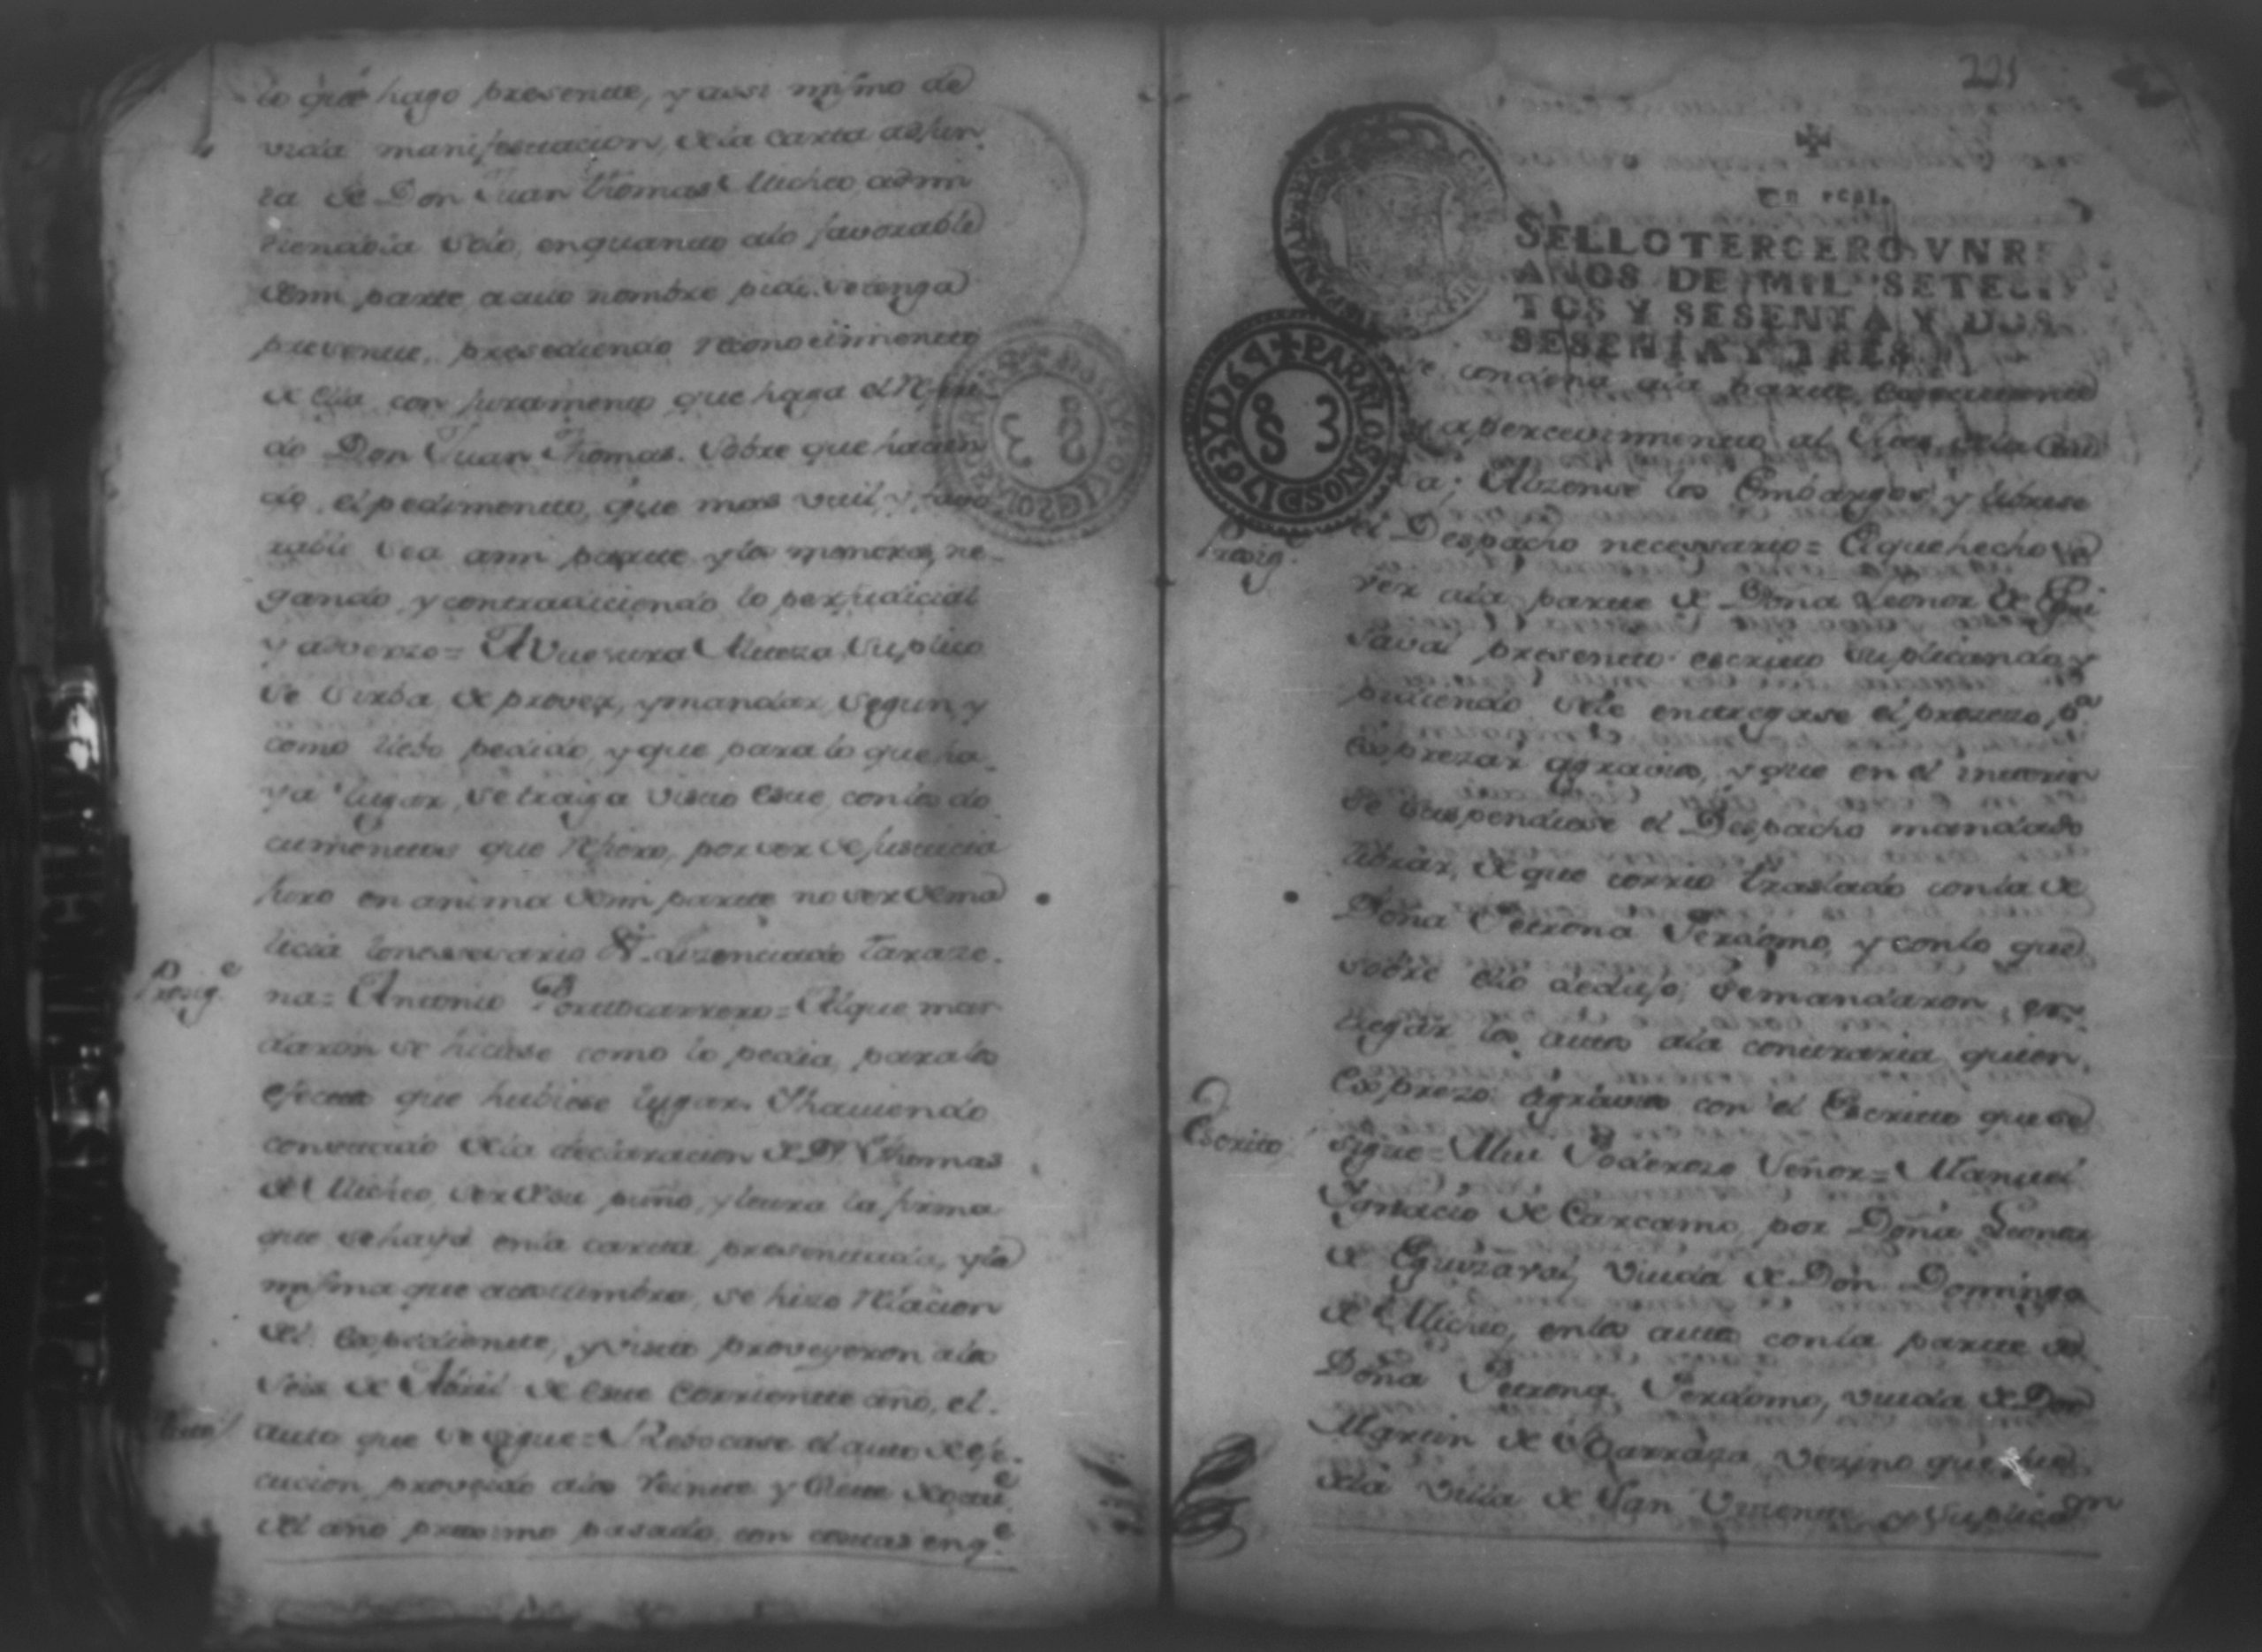 lo que hago presente, y assi mismo de
vida manifestacion, de la carta adjun
ta de Don Juan Thomas Micheo admi
tiendola solo, enquanto alo favorable
demi parte acuio nombre pido. setenga
presente, presediendo reconocimiento
de ella con juramento que haga el Referi
do Don Juan Thomas. Sobre que hacien
do el pedimento, que mas util, y favo
rable sea ami parte y los menores, ne
gando, y contradiciendo lo perjudicial
y adverso= A Vuestra Alteza suplico
se sirba de proveer, y mandar, segun, y
como llebo pedido, y que para lo que ha
ya lugar, se traiga visto este, con los do
cumentos que refiero, por ser de justicia
juro en anima demi parte no ser de ma
licia lonessesario &.ª Lizenciado Taraze
Prosig.e
na= Antonio Portocarrero= Alque man
daron se hiciese como lo pedia, para los
efectos que hubiese lugar. Y haviendo
constado de la declaracion de D.n Thomas
de Micheo, ser desu puño, y letra la firma
que sehaya enla carta presentada, y la
misma que acostumbra, se hizo relacion
del Expediente, y visto proveyeron alos
seis de Abril de este corriente año, el
Auto
auto que se sigue= Rebocase el auto de eje
cucion proveido alos veinte y siete de oct.e
del año proximo pasado, con costas enq.e
221
Un real.
SELLO TERCERO VN RE
AÑOS DE MIL SETECI
TOS Y SESENTA Y DOS
SESENTA Y TRES
CARLOS
P.A LOS AÑOS D 1763 Y 1764
S 3
se condena ala parte, executante
y apercevimiento al Juez de la Cau
sa; Alzense los Embargos, y librese
Prosig.e
el Despacho necessario= A que hecho sa
ver ala parte de Doña Leonor de Egui
saval presento escripto suplicando, y
pidiendo sele entregase el prozezo, p.a
Exprezar agravios, y que en el interin
se suspendiese el Despacho mandado
librar, de que corrio traslado conla de
Doña Petrona Perdomo, y conlo que
sobre ello dedujo; se mandaron en
tregar los autos ala contraria, quien
exprezo agravios con el Escripto que se
Escripto
sigue= Mui Poderozo Señor= Manuel
Ygnacio de Carcamo, por Doña Leonor
de Eguizaval, viuda de Don Domingo
de Micheo, enlos autos conla parte de
Doña Petrona Perdomo, viuda de Don
Martin de Barraza vezino que fue
dela villa de San Vizente, y suplicaz.on